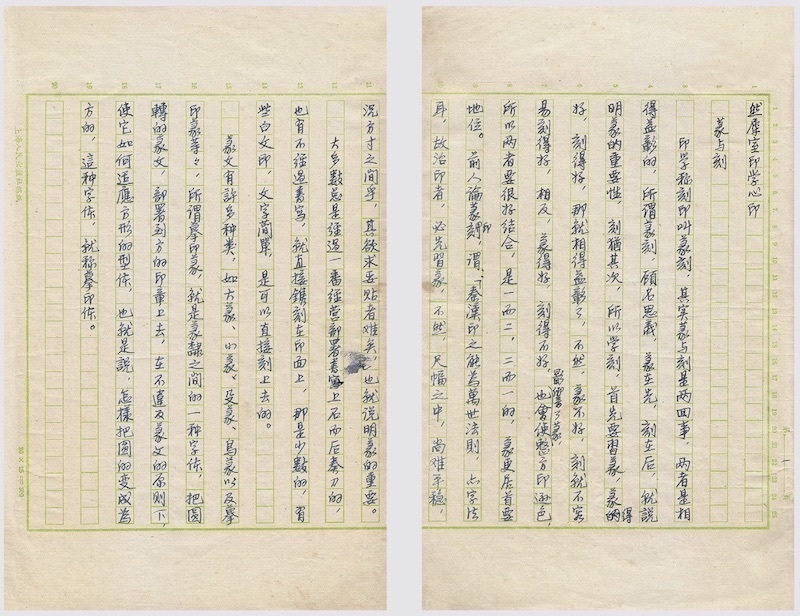 然犀室印学心印
篆与刻
印学称刻印叫篆刻，其实篆与刻是两回事，两者是相
得益彰的，所谓篆刻，顾名思義，篆在先，刻在后，就説
明篆的重要性，刻猶其次，所以学刻，首先要習篆，篆得
好，刻得好，那就相得益彰了，不然，篆不好，刻就不容
易刻得好，相反，篆得好，刻得不好，影響了篆，也會使整方印逊色，
所以两者要很好结合，是一而二，二而一的，篆更居首要
地位。前人論篆刻印，謂：「秦漢印之能為萬世法則，点字法
耳，故治印者，必先習篆，不然，尺幅之中，尚难平稳，
况方寸之间乎，其欲求要贴者难矣，」也就说明篆的重要。
大多數总是经過一番经营部署書寫上石而后奏刀的，
也有不经過書寫，就直接鐫刻在印面上，那是少數的，有
些白文印，文字简單，是可以直接刻上去的。
篆文有許多种类，如大篆、小篆、殳篆、鸟篆以及摹
印篆等々，所謂摹印篆，就是篆隸之间的一种字体，把圆
轉的篆文，部署到方的印章上去，在不違反篆文的原则下，
使它如何适應方形的型体，也就是説，怎樣把圆的变成為
方的，這种字体，就称摹印体。